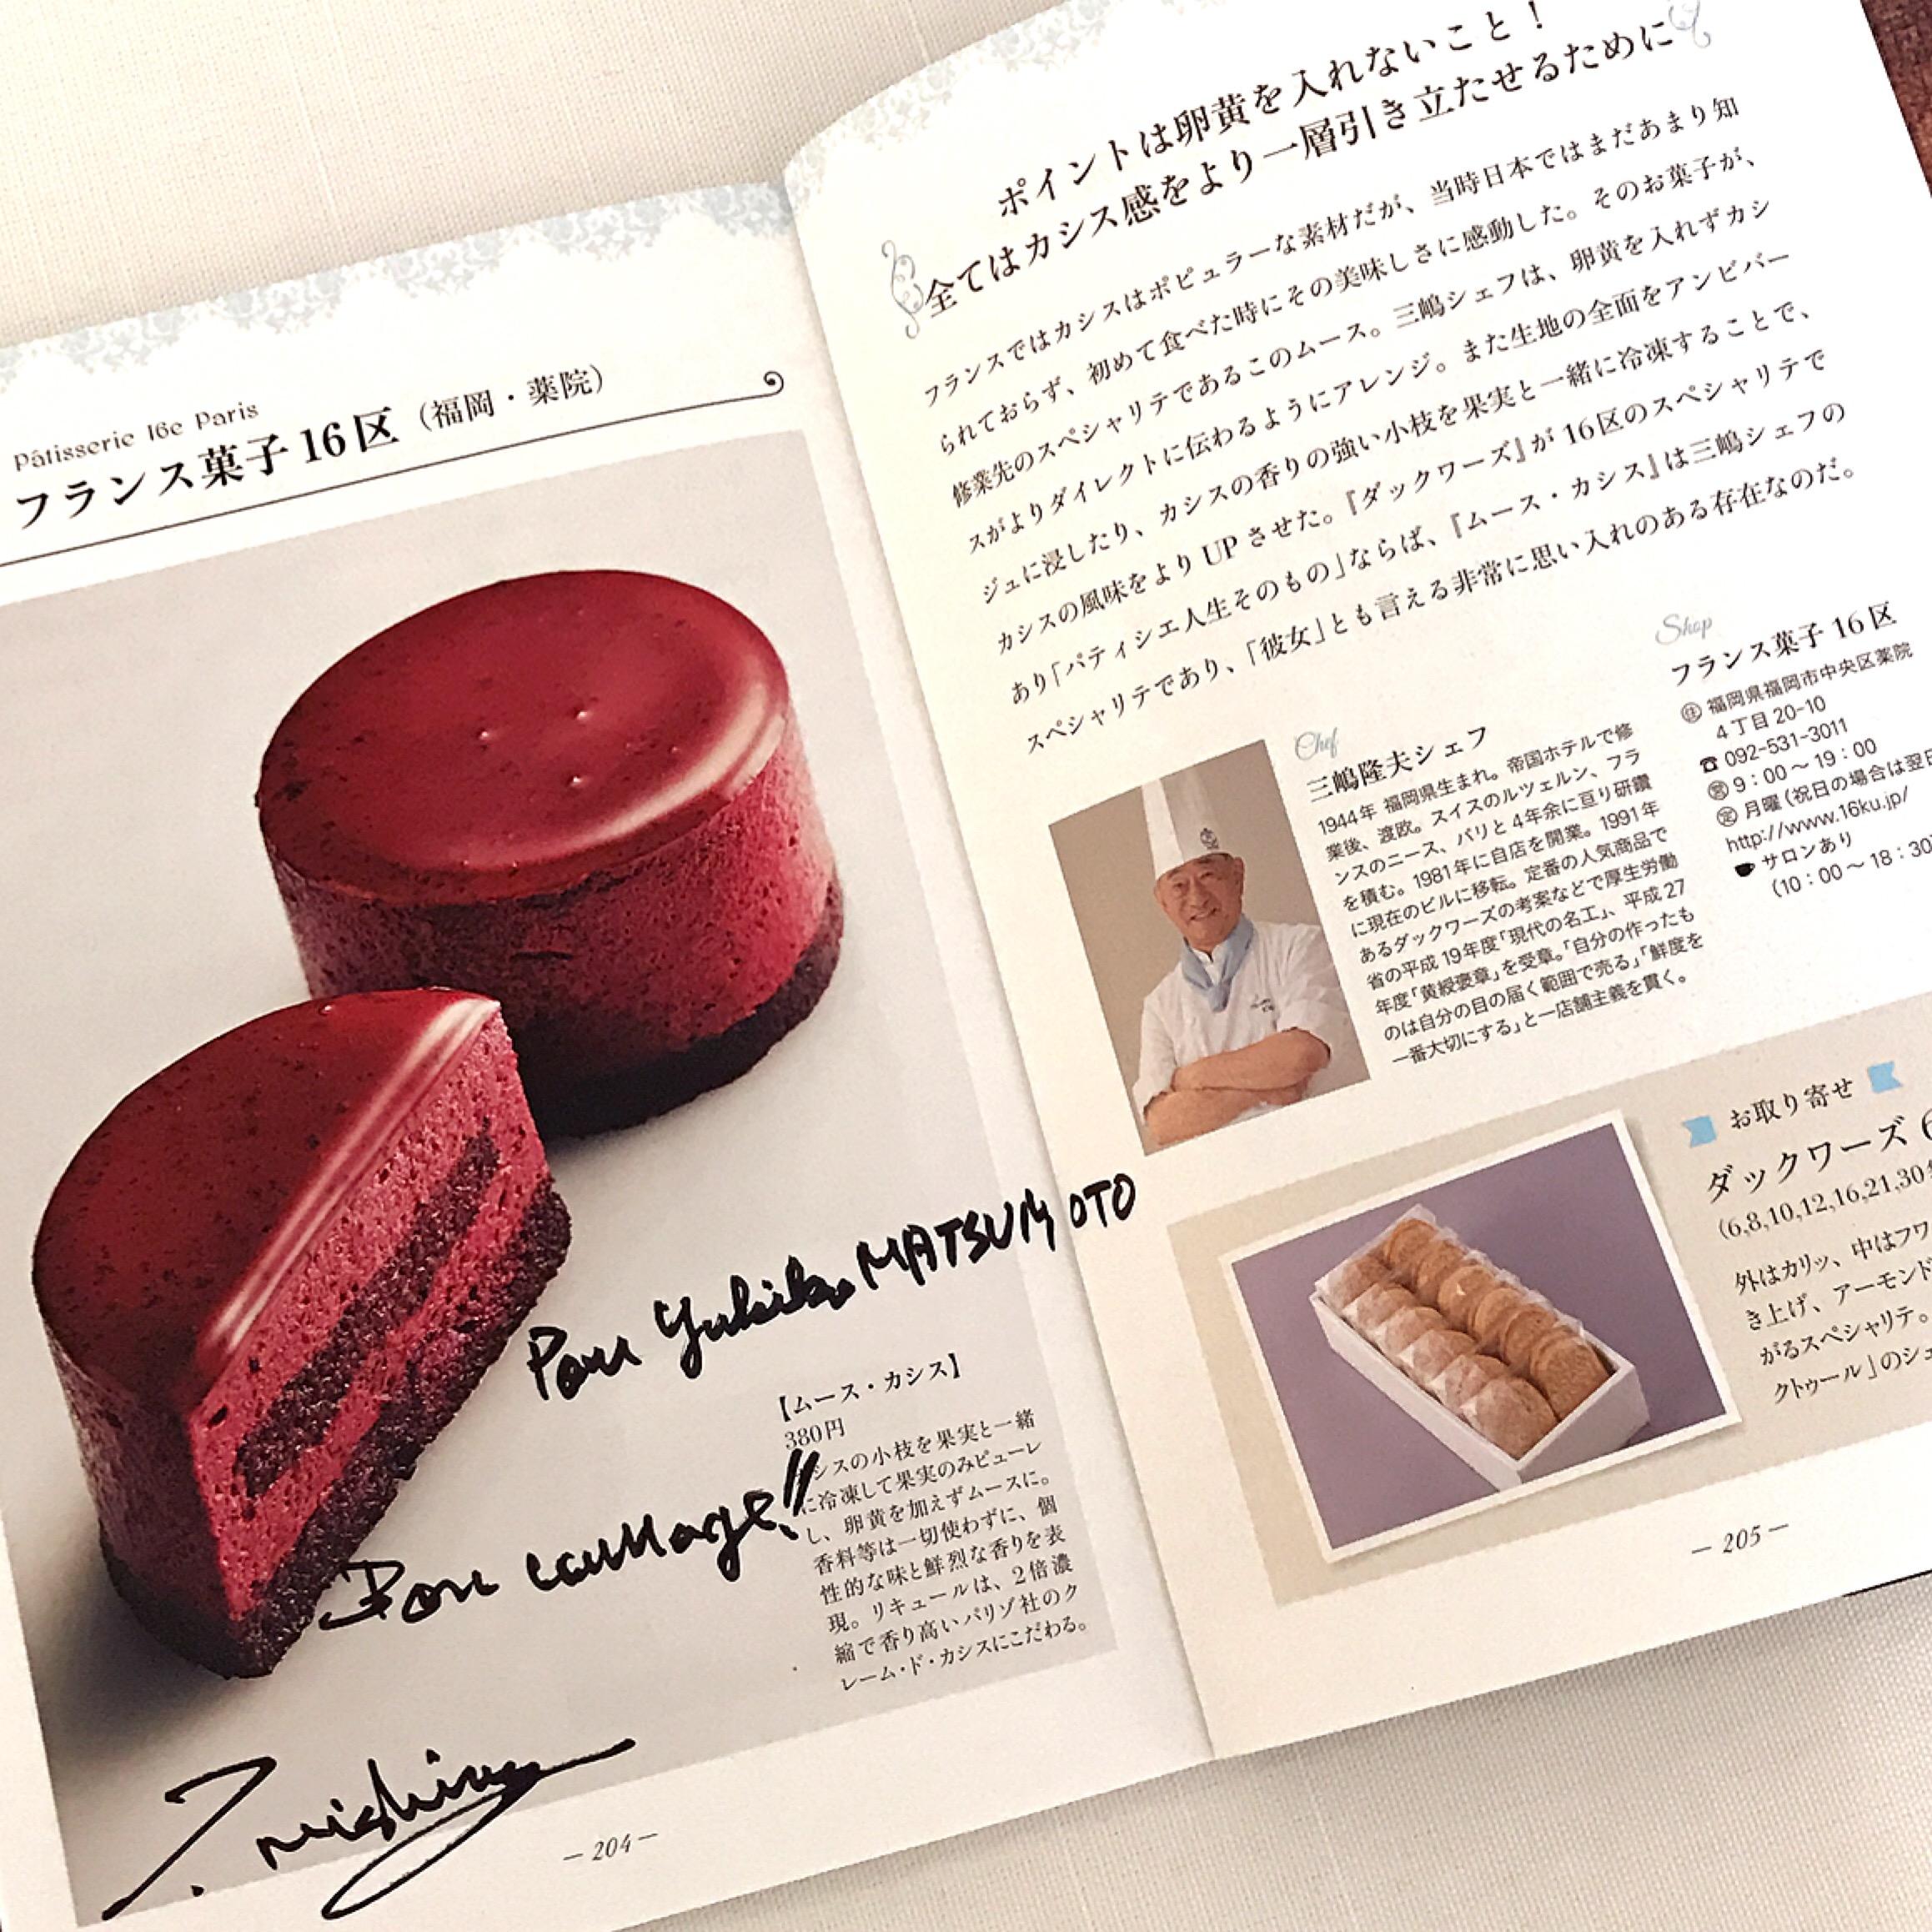 Pâtisserie 16e Paris
フランス菓子 16区（福岡・薬院）
Pour Yukiko MATSUMOTO
【ムース・カシス】
380円
シスの小枝を果実と一緒
に冷凍して果実のみピューレ
し、卵黄を加えずムースに。
香料等は一切使わずに、個
性的な味と鮮烈な香りを表
現。リキュールは、2倍濃
縮で香り高いパリゾ社のク
レーム・ド・カシスにこだわる。
Bon courage!!
T. Mishima
— 204 —
ポイントは卵黄を入れないこと！
全てはカシス感をより一層引き立たせるために
フランスではカシスはポピュラーな素材だが、当時日本ではまだあまり知
られておらず、初めて食べた時にその美味しさに感動した。そのお菓子が、
修業先のスペシャリテであるこのムース。三嶋シェフは、卵黄を入れずカシ
スがよりダイレクトに伝わるようにアレンジ。また生地の全面をアンビバー
ジュに浸したり、カシスの香りの強い小枝を果実と一緒に冷凍することで、
カシスの風味をより UP させた。『ダックワーズ』が 16区のスペシャリテで
あり「パティシエ人生そのもの」ならば、『ムース・カシス』は三嶋シェフの
スペシャリテであり、「彼女」とも言える非常に思い入れのある存在なのだ。
Chef
三嶋隆夫シェフ
1944年 福岡県生まれ。帝国ホテルで修
業後、渡欧。スイスのルツェルン、フラ
ンスのニース、パリと4年余に亘り研鑽
を積む。1981年に自店を開業。1991年
に現在のビルに移転。定番の人気商品で
あるダックワーズの考案などで厚生労働
省の平成19年度「現代の名工」、平成27
年度「黄綬褒章」を受章。「自分の作ったも
のは自分の目の届く範囲で売る」「鮮度を
一番大切にする」と一店舗主義を貫く。
Shop
フランス菓子 16区
㊟ 福岡県福岡市中央区薬院
4丁目20-10
☎ 092-531-3011
㊡ 9：00～19：00
㊡ 月曜（祝日の場合は翌日
http://www.16ku.jp/
サロンあり
（10：00～18：30
お取り寄せ
ダックワーズ 6
（6,8,10,12,16,21,30
外はカリッ、中はフワ
き上げ、アーモンド
がるスペシャリテ。
クトゥール」のシェ
— 205 —